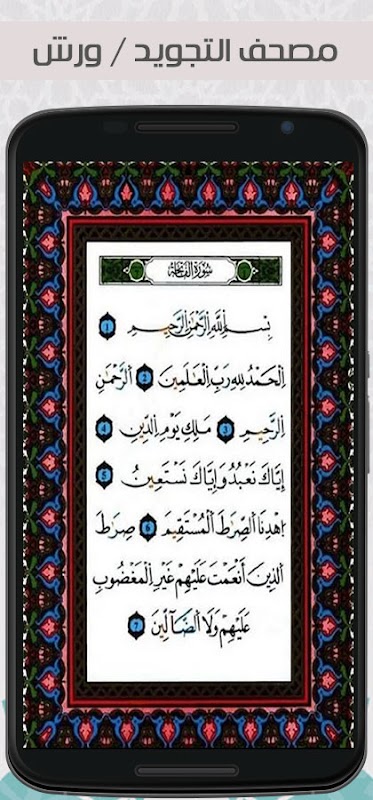 مصحف التجويد / ورش
سُورَةُ الفَاتِحَةِ
بِسْمِ اِ۬للَّهِ اِ۬لرَّحْمَٰنِ اِ۬لرَّحِيمِ 1
اِ۬لْحَمْدُ لِلهِ رَبِّ اِ۬لْعَٰلَمِينَ 2 اَ۬لرَّحْمَٰنِ
اِ۬لرَّحِيمِ 3 مَلِكِ يَوْمِ اِ۬لدِّينِ 4
إِيَّاكَ نَعْبُدُ وَإِيَّاكَ نَسْتَعِينُ 5
اُ۪هْدِنَا اَ۬لصِّرَٰطَ اَ۬لْمُسْتَقِيمَ 6 صِرَٰطَ
اَ۬لذِينَ أَنْعَمْتَ عَلَيْهِمْ غَيْرِ اِ۬لْمَغْضُوبِ
عَلَيْهِمْ وَلَا اَ۬لضَّآلِّينَ 7